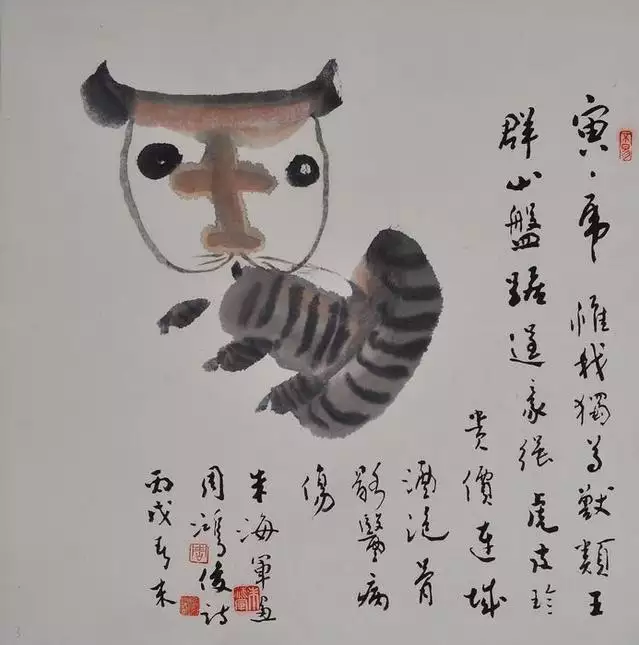 寅、虎 惟我獨尊獸類王
群山盤踞逞豪强 虎皮珍
贵價連城
酒泡骨
骸醫病
傷
朱海軍画
周鴻俊詩
丙戌春末
3